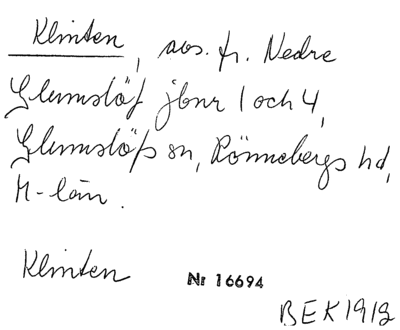 Klinten, avs. fr. Nedre
Glumslöf jbnr 1 och 4,
Glumslöfs sn, Rönnebergs hd,
M-län.
Klinten Nr 16694
BEK 1919